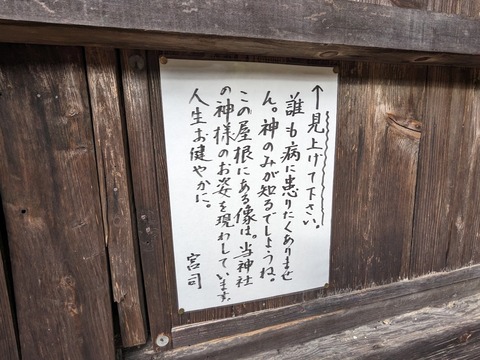 ↑見上げて下さい。
誰も病に患りたくありませ
ん。神のみが知るでしょうね。
この屋根にある像は。当神社
の神様のお姿を現わしています。
人生お健やかに。
宮司